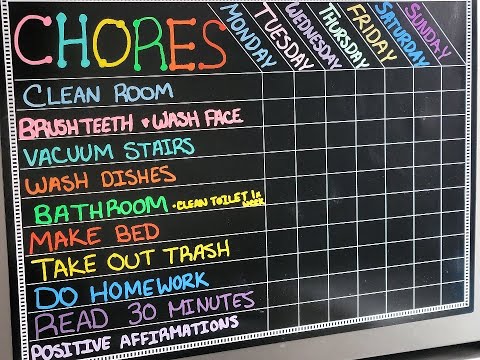 CHORES
MONDAY
TUESDAY
WEDNESDAY
THURSDAY
FRIDAY
SATURDAY
SUNDAY
CLEAN ROOM
BRUSH TEETH & WASH FACE
VACUUM STAIRS
WASH DISHES
BATHROOM • CLEAN TOILET 1x WEEK
MAKE BED
TAKE OUT TRASH
DO HOMEWORK
READ 30 MINUTES
POSITIVE AFFIRMATIONS